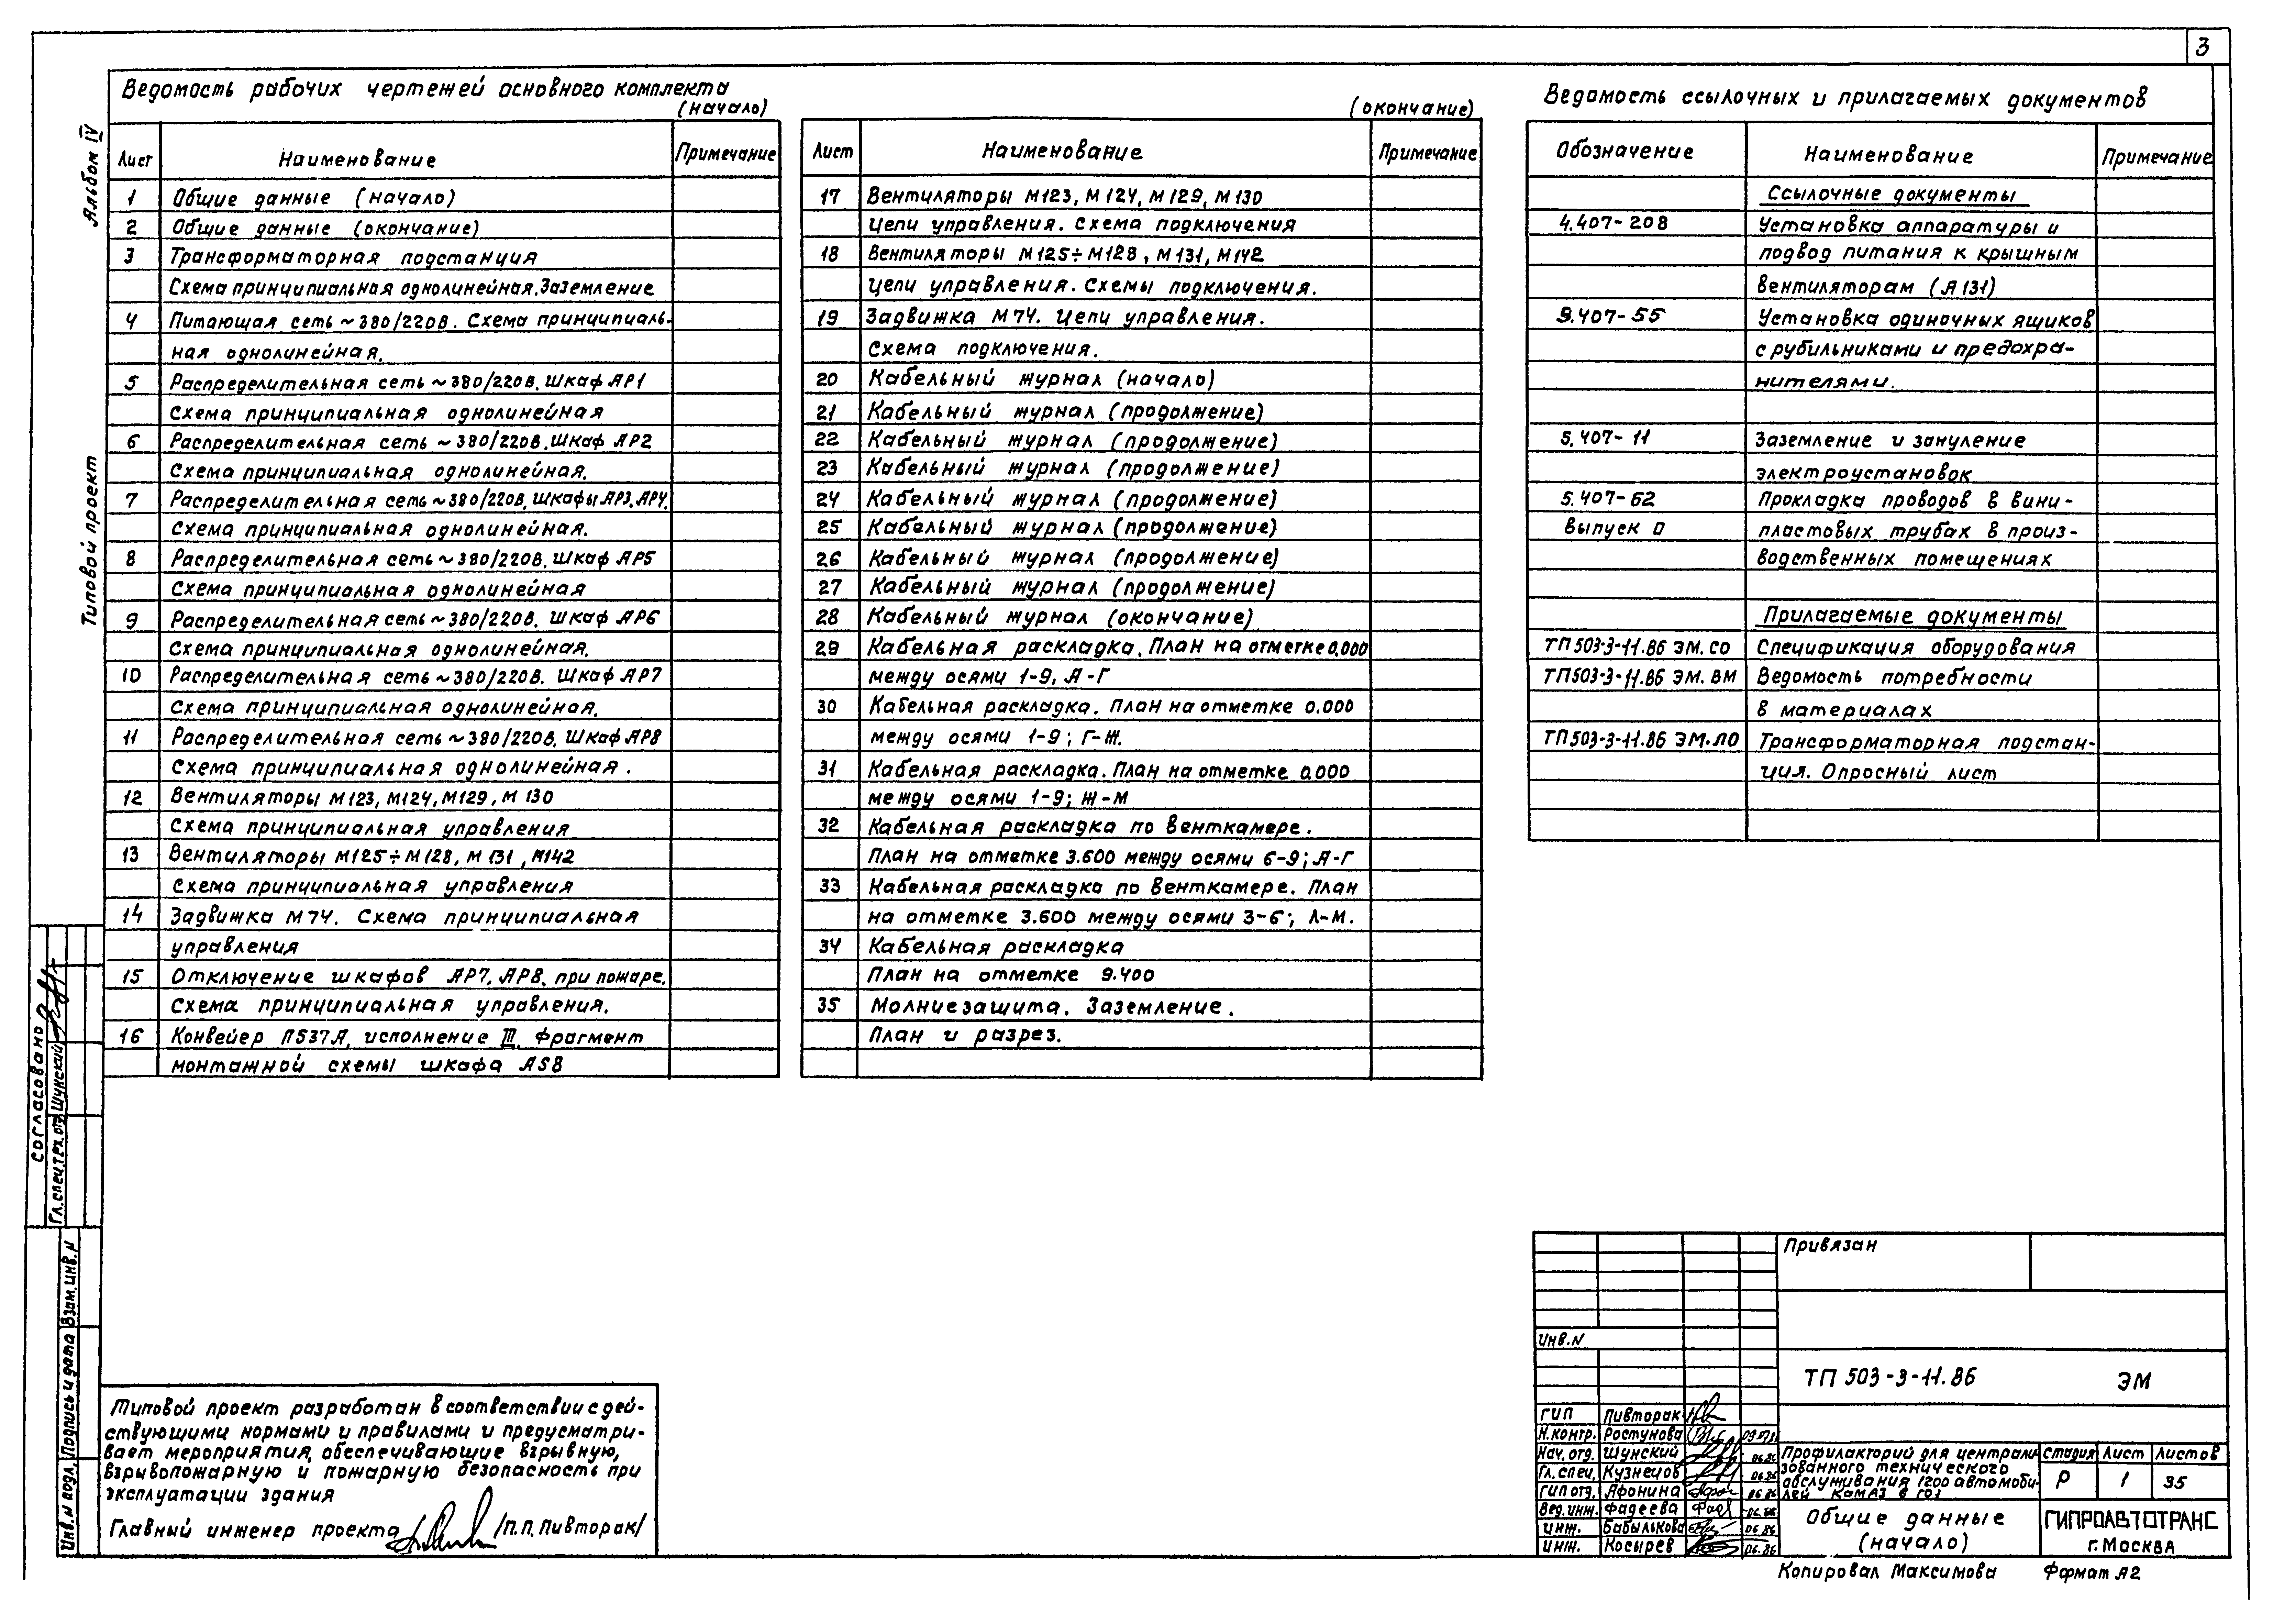 3
Ведомость рабочих чертежей основного комплекта
(начало)
Лист Наименование Примечание
1 Общие данные (начало)
2 Общие данные (окончание)
3 Трансформаторная подстанция
Схема принципиальная однолинейная. Заземление
4 Питающая сеть ~380/220В. Схема принципиаль-
ная однолинейная.
5 Распределительная сеть ~380/220В. Шкаф АР1
Схема принципиальная однолинейная
6 Распределительная сеть ~380/220В. Шкаф АР2
Схема принципиальная однолинейная.
7 Распределительная сеть ~380/220В. Шкафы АР3, АР4.
Схема принципиальная однолинейная.
8 Распределительная сеть ~380/220В. Шкаф АР5
Схема принципиальная однолинейная
9 Распределительная сеть ~380/220В. Шкаф АР6
Схема принципиальная однолинейная.
10 Распределительная сеть ~380/220В. Шкаф АР7
Схема принципиальная однолинейная.
11 Распределительная сеть ~380/220В. Шкаф АР8
Схема принципиальная однолинейная.
12 Вентиляторы М123, М124, М129, М130
Схема принципиальная управления
13 Вентиляторы М125÷М128, М131, М142
Схема принципиальная управления
14 Задвижка М74. Схема принципиальная
управления
15 Отключение шкафов АР7, АР8. при пожаре.
Схема принципиальная управления.
16 Конвейер П537А, исполнение III. Фрагмент
монтажной схемы шкафа AS8
(окончание)
Лист Наименование Примечание
17 Вентиляторы М123, М124, М129, М130
Цепи управления. Схема подключения
18 Вентиляторы М125÷М128, М131, М142
Цепи управления. Схемы подключения.
19 Задвижка М74. Цепи управления.
Схема подключения.
20 Кабельный журнал (начало)
21 Кабельный журнал (продолжение)
22 Кабельный журнал (продолжение)
23 Кабельный журнал (продолжение)
24 Кабельный журнал (продолжение)
25 Кабельный журнал (продолжение)
26 Кабельный журнал (продолжение)
27 Кабельный журнал (продолжение)
28 Кабельный журнал (окончание)
29 Кабельная раскладка. План на отметке 0.000
между осями 1-9, А-Г
30 Кабельная раскладка. План на отметке 0.000
между осями 1-9; Г-Ж.
31 Кабельная раскладка. План на отметке 0.000
между осями 1-9; Ж-М
32 Кабельная раскладка по венткамере.
План на отметке 3.600 между осями 6-9; А-Г
33 Кабельная раскладка по венткамере. План
на отметке 3.600 между осями 3-6; Л-М.
34 Кабельная раскладка
План на отметке 9.400
35 Молниезащита. Заземление.
План и разрез.
Ведомость ссылочных и прилагаемых документов
Обозначение Наименование Примечание
Ссылочные документы
4.407-208 Установка аппаратуры и
подвод питания к крышным
вентиляторам (А131)
9.407-55 Установка одиночных ящиков
с рубильниками и предохра-
нителями.
5.407-11 Заземление и зануление
электроустановок
5.407-62 Прокладка проводов в вини-
Выпуск 0 пластовых трубах в произ-
водственных помещениях
Прилагаемые документы
ТП503-3-11.86 ЭМ.СО Спецификация оборудования
ТП503-3-11.86 ЭМ.ВМ Ведомость потребности
в материалах
ТП503-3-11.86 ЭМ.ЛО Трансформаторная подстан-
ция. Опросный лист
Альбом IV
Типовой проект
Согласовано
Гл.спец.тех.отд Шунский
Взам.инв.№
Подпись и дата
Инв.№ подл.
Типовой проект разработан в соответствии с дей-
ствующими нормами и правилами и предусматри-
вает мероприятия, обеспечивающие взрывную,
взрывопожарную и пожарную безопасность при
эксплуатации здания
Главный инженер проекта /П.П. Пивторак/
Привязан
Инв.N
ТП 503-3-11.86 ЭМ
ГИП Пивторак
Н.контр. Ростунова
Нач.отд. Шунский 06.86
Гл.спец. Кузнецов 06.86
ГИП отд. Афонина 06.86
Вед.инж. Фадеева 06.86
инж. Бабылькова 06.86
инж. Косырев 06.86
Профилакторий для централи-
зованного технического
обслуживания 1200 автомоби-
лей КамАЗ в год
Стадия Лист Листов
Р 1 35
Общие данные
(начало)
ГИПРОАВТОТРАНС
г. Москва
Копировал Максимова Формат А2